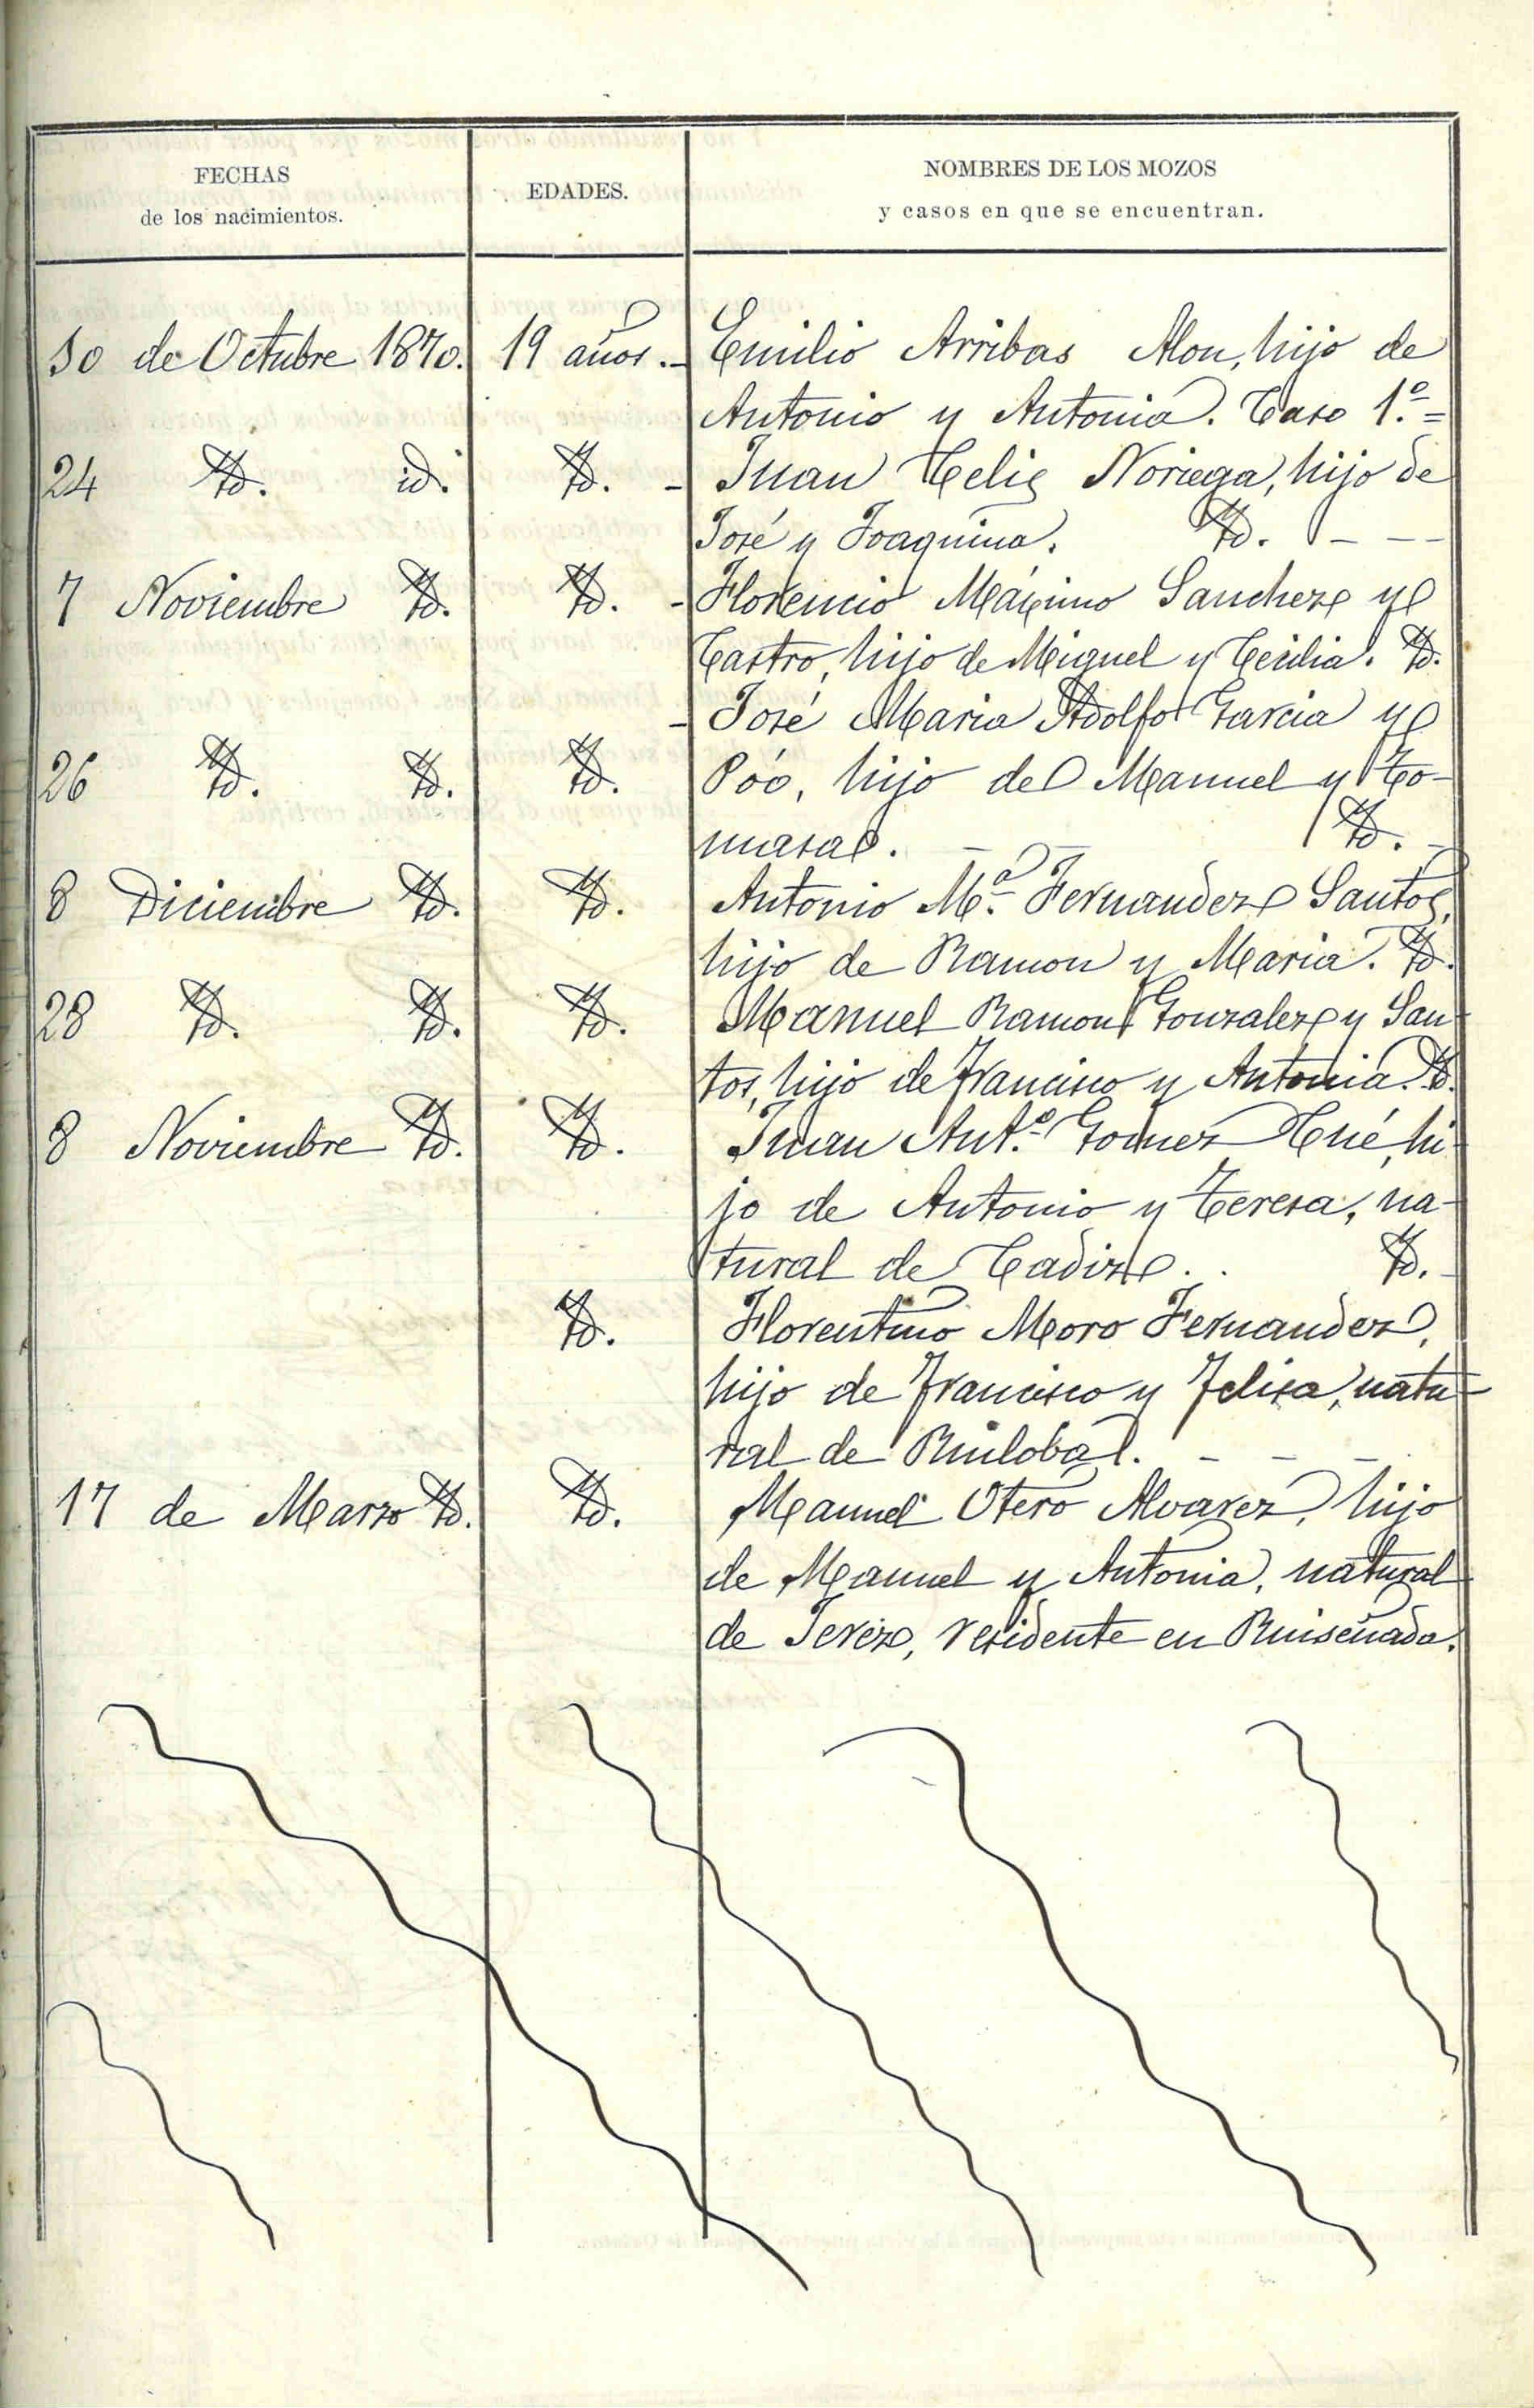 FECHAS
de los nacimientos.
EDADES.
NOMBRES DE LOS MOZOS
y casos en que se encuentran.
10 de Octubre 1870. 19 años. - Emilio Arribas Alon, hijo de
Antonio y Antonia. Caso 1.º =
24 Yd. id. Yd. - Juan Celis Noriega, hijo de
José y Joaquina. Yd. - - -
7 Noviembre Yd. Yd. - Florencio Máximo Sanchez y
Castro, hijo de Miguel y Cecilia. Yd.
- José Maria Adolfo Garcia y
26 Yd. Yd. Yd. Póo, hijo de Manuel y To-
masa. - - Yd. -
8 Diciembre Yd. Yd. Antonio M.ª Fernandez Santos,
hijo de Ramon y Maria. Yd.
28 Yd. Yd. Yd. Manuel Ramon Gonzalez y San
tos, hijo de Francisco y Antonia. Yd.
8 Noviembre Yd. Yd. Juan Ant.º Gomez Cué, hi
jo de Antonio y Teresa, na-
tural de Cadiz. . Yd. -
Yd. Florentino Moro Fernandez,
hijo de Francisco y Felisa, natu-
ral de Ruiloba. - - -
17 de Marzo Yd. Yd. Manuel Otero Alvarez, hijo
de Manuel y Antonia, natural
de Jerez, residente en Ruiseñada.